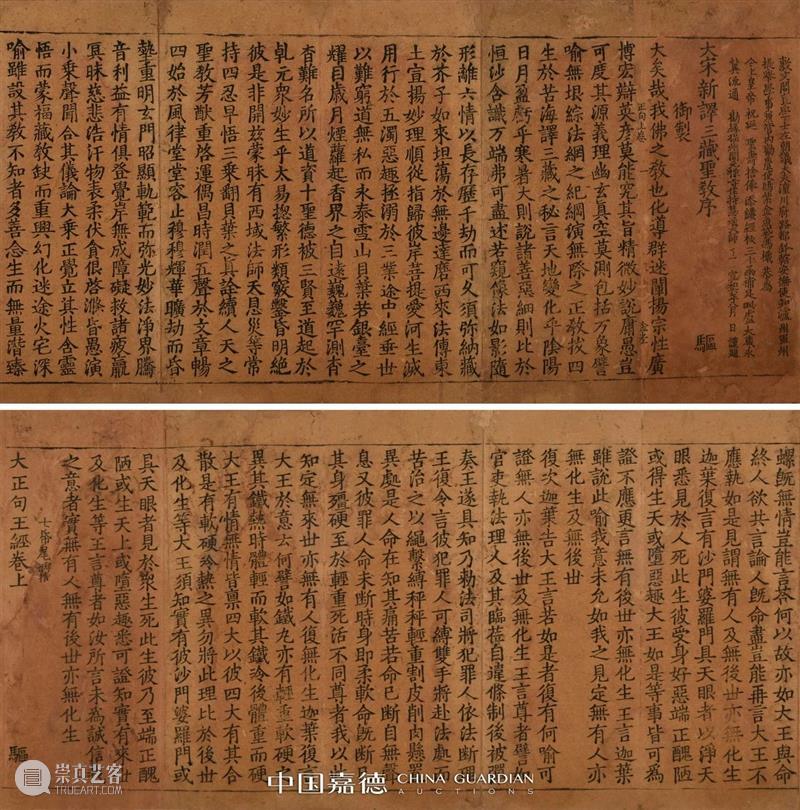 敷文閣直學士左朝議大夫潼川府路都鈐轄安撫使知瀘州軍州
提舉學事兼管內勸農使馮楫
今上皇帝祝延 聖壽捨俸添鏤經板三十函補足 大藏永
冀流通 勸緣福州開元禪寺住持慧通大師了一
大宋新譯三藏聖教序
御製 驅
大矣哉我佛之教也化導群迷闡揚宗性廣
博宏辯英彥莫能究其旨精微妙說庸愚豈
可度其源義理幽玄真空莫測包括万象譬
喻無垠綜法網之紀綱演無際之正教拔四
生於苦海譯三藏之秘言天地變化乎陰陽
日月盈虧乎寒暑大則說諸善惡細則比於
恒沙含識万端弗可盡述若窺像法如影隨
形離六情以長存歷千劫而可久須弥納藏
於芥子如來坦蕩於無邊達磨西來法傳東
土宣揚妙理順從指歸彼岸菩提愛河生滅
用行於五濁惡趣拯溺於三業途中經垂世
以難窮道無私而永泰雪山貝葉若銀臺之
耀目歲月煙蘿起香界之自遠巍巍罕測杳
杳難名所以道資十聖德被三賢至道起於
乹元衆妙生乎太易揔繁形類竅鑿昏明絕
彼是非開茲蒙昧有西域法師天息災等常
持四忍早悟三乘翻貝葉之真詮續人天之
聖教芳猷重啓運偶昌時潤五聲於文章暢
四始於風律堂堂容止穆穆輝華曠劫而昏
蟄重明玄門昭顯軌範而弥光妙法淨界騰
音利益有情俱登覺岸無成障礙救諸疲羸
冥昧慈悲浩汗物表柔伏貪佷啓滌皆愚演
小乘聲聞合其儀論大乘正覺立其性含靈
悟而蒙福藏教缺而重興幻化迷途火宅深
喻雖設其教不知者多善念生而無量潛臻
螺旣無情豈能言荅何以故亦如大王與命
終人欲共言論人旣命盡豈能再言大王不
應執如是見謂無有人及無後世亦無化生
迦葉復言有沙門婆羅門具天眼者以淨天
眼悉見於人死此生彼受身好惡端正醜陋
或得生天或墮惡趣大王如是等事皆可為
證不應更言無有後世亦無化生王言迦葉
雖說此喻我意未允如我之見定無有人亦
無化生及無後世
復次迦葉告大王言若如是者復有何喻可
證無人亦無後世及無化生王言尊者譬如
官吏執法理人及其臨莅自違條制後被彈
奏王遂具知乃勑法司將犯罪人依法斷
王復令言彼犯罪人可縛雙手將赴法處
苦治之以繩繫縛秤秤輕重割皮削肉懸
異處是人命在知其痛苦若命已斷自無
息又彼罪人命未斷時身即柔軟命旣斷
其身殭硬至於輕重死活不同尊者我以
知定無來世亦無有人復無化生迦葉復
大王於意云何譬如鐵丸亦有輕重軟硬
異其鐵熱時體輕而軟其鐵冷後體重而硬
大王有情無情皆稟四大以彼四大有其合
散是有軟硬冷熱之異勿將此理比於後世
及化生等大王須知實有彼沙門婆羅門或
具天眼者見於衆生死此生彼乃至端正醜
陋或生天上或墮惡趣悉可證知實有來世
及化生等王言尊者如汝所言未為誠信
之意者實無有人無有後世亦無化生
大正句王經卷上 驅
中国嘉德
CHINA GUARDIAN
AUCTIONS
崇真艺客